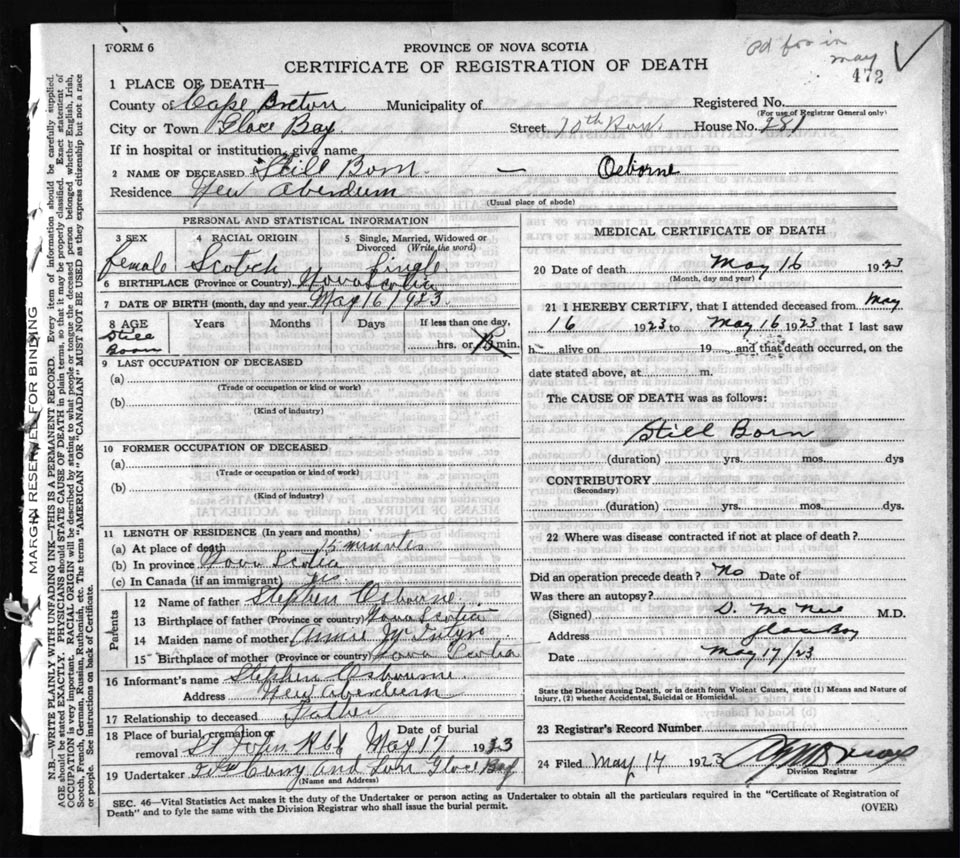 FORM 6
PROVINCE OF NOVA SCOTIA
CERTIFICATE OF REGISTRATION OF DEATH
pd for in
may
472
1 PLACE OF DEATH—
County of Cape Breton Municipality of Registered No.
(For use of Registrar General only)
City or Town Glace Bay. Street 10th Row. House No. 281
If in hospital or institution, give name
2 NAME OF DECEASED Still Born. — Osborne
Residence New Aberdeen
(Usual place of abode)
PERSONAL AND STATISTICAL INFORMATION
3 SEX 4 RACIAL ORIGIN 5 Single, Married, Widowed or Divorced (Write the word)
female Scotch Single
6 BIRTHPLACE (Province or Country) Nova Scotia
7 DATE OF BIRTH (month, day and year) May 16 1923.
8 AGE Years Months Days If less than one day,
Still Born hrs. or 15 min.
9 LAST OCCUPATION OF DECEASED
(a)
(Trade or occupation or kind or work)
(b)
(Kind of industry)
10 FORMER OCCUPATION OF DECEASED
(a)
(Trade or occupation or kind of work)
(b)
(Kind of industry)
11 LENGTH OF RESIDENCE (In years and months)
(a) At place of death 15 minutes
(b) In province Nova Scotia
(c) In Canada (if an immigrant) yes
Parents
12 Name of father Stephen Osborne.
13 Birthplace of father (Province or country) Nova Scotia
14 Maiden name of mother Annie
15 Birthplace of mother (Province or country) Nova Scotia
16 Informant's name Stephen Osbourne.
Address New Aberdeen
17 Relationship to deceased Father
18 Place of burial, cremation or removal St John Date of burial May 17 1923
19 Undertaker and Son Glace Bay
(Name and Address)
MEDICAL CERTIFICATE OF DEATH
20 Date of death May 16 1923
(Month, day and year)
21 I HEREBY CERTIFY, that I attended deceased from May
16 1923 to May 16 1923 that I last saw
h alive on 19 and that death occurred, on the
date stated above, at m.
The CAUSE OF DEATH was as follows:
Still Born
(duration) yrs. mos. dys
CONTRIBUTORY
(Secondary)
(duration) yrs. mos. dys.
22 Where was disease contracted if not at place of death?
Did an operation precede death? No Date of
Was there an autopsy?
(Signed) D. McNeil M.D.
Address Glace Bay
Date May 17/23
State the Disease causing Death, or in death from Violent Causes, state (1) Means and Nature of
Injury, (2) whether Accidental, Suicidal or Homicidal.
23 Registrar's Record Number
24 Filed May 17 1923
Division Registrar
SEC. 46—Vital Statistics Act makes it the duty of the Undertaker or person acting as Undertaker to obtain all the particulars required in the "Certificate of Registration of
Death" and to fyle the same with the Division Registrar who shall issue the burial permit.
(OVER)
MARGIN RESERVED FOR BINDING
N.B.—WRITE PLAINLY WITH UNFADING INK—THIS IS A PERMANENT RECORD. Every item of information should be carefully supplied.
AGE should be stated EXACTLY. PHYSICIANS should STATE CAUSE OF DEATH in plain terms, so that it may be properly classified. Exact statement of
OCCUPATION is very important. RACIAL ORIGIN will be described by stating to what people or tongue the deceased person belonged whether English, Irish,
Scotch, French, German, Russian, Ruthenian, etc. The terms "AMERICAN" OR "CANADIAN" MUST NOT BE USED as they express citizenship but not a race
or people. See instructions on back of Certificate.